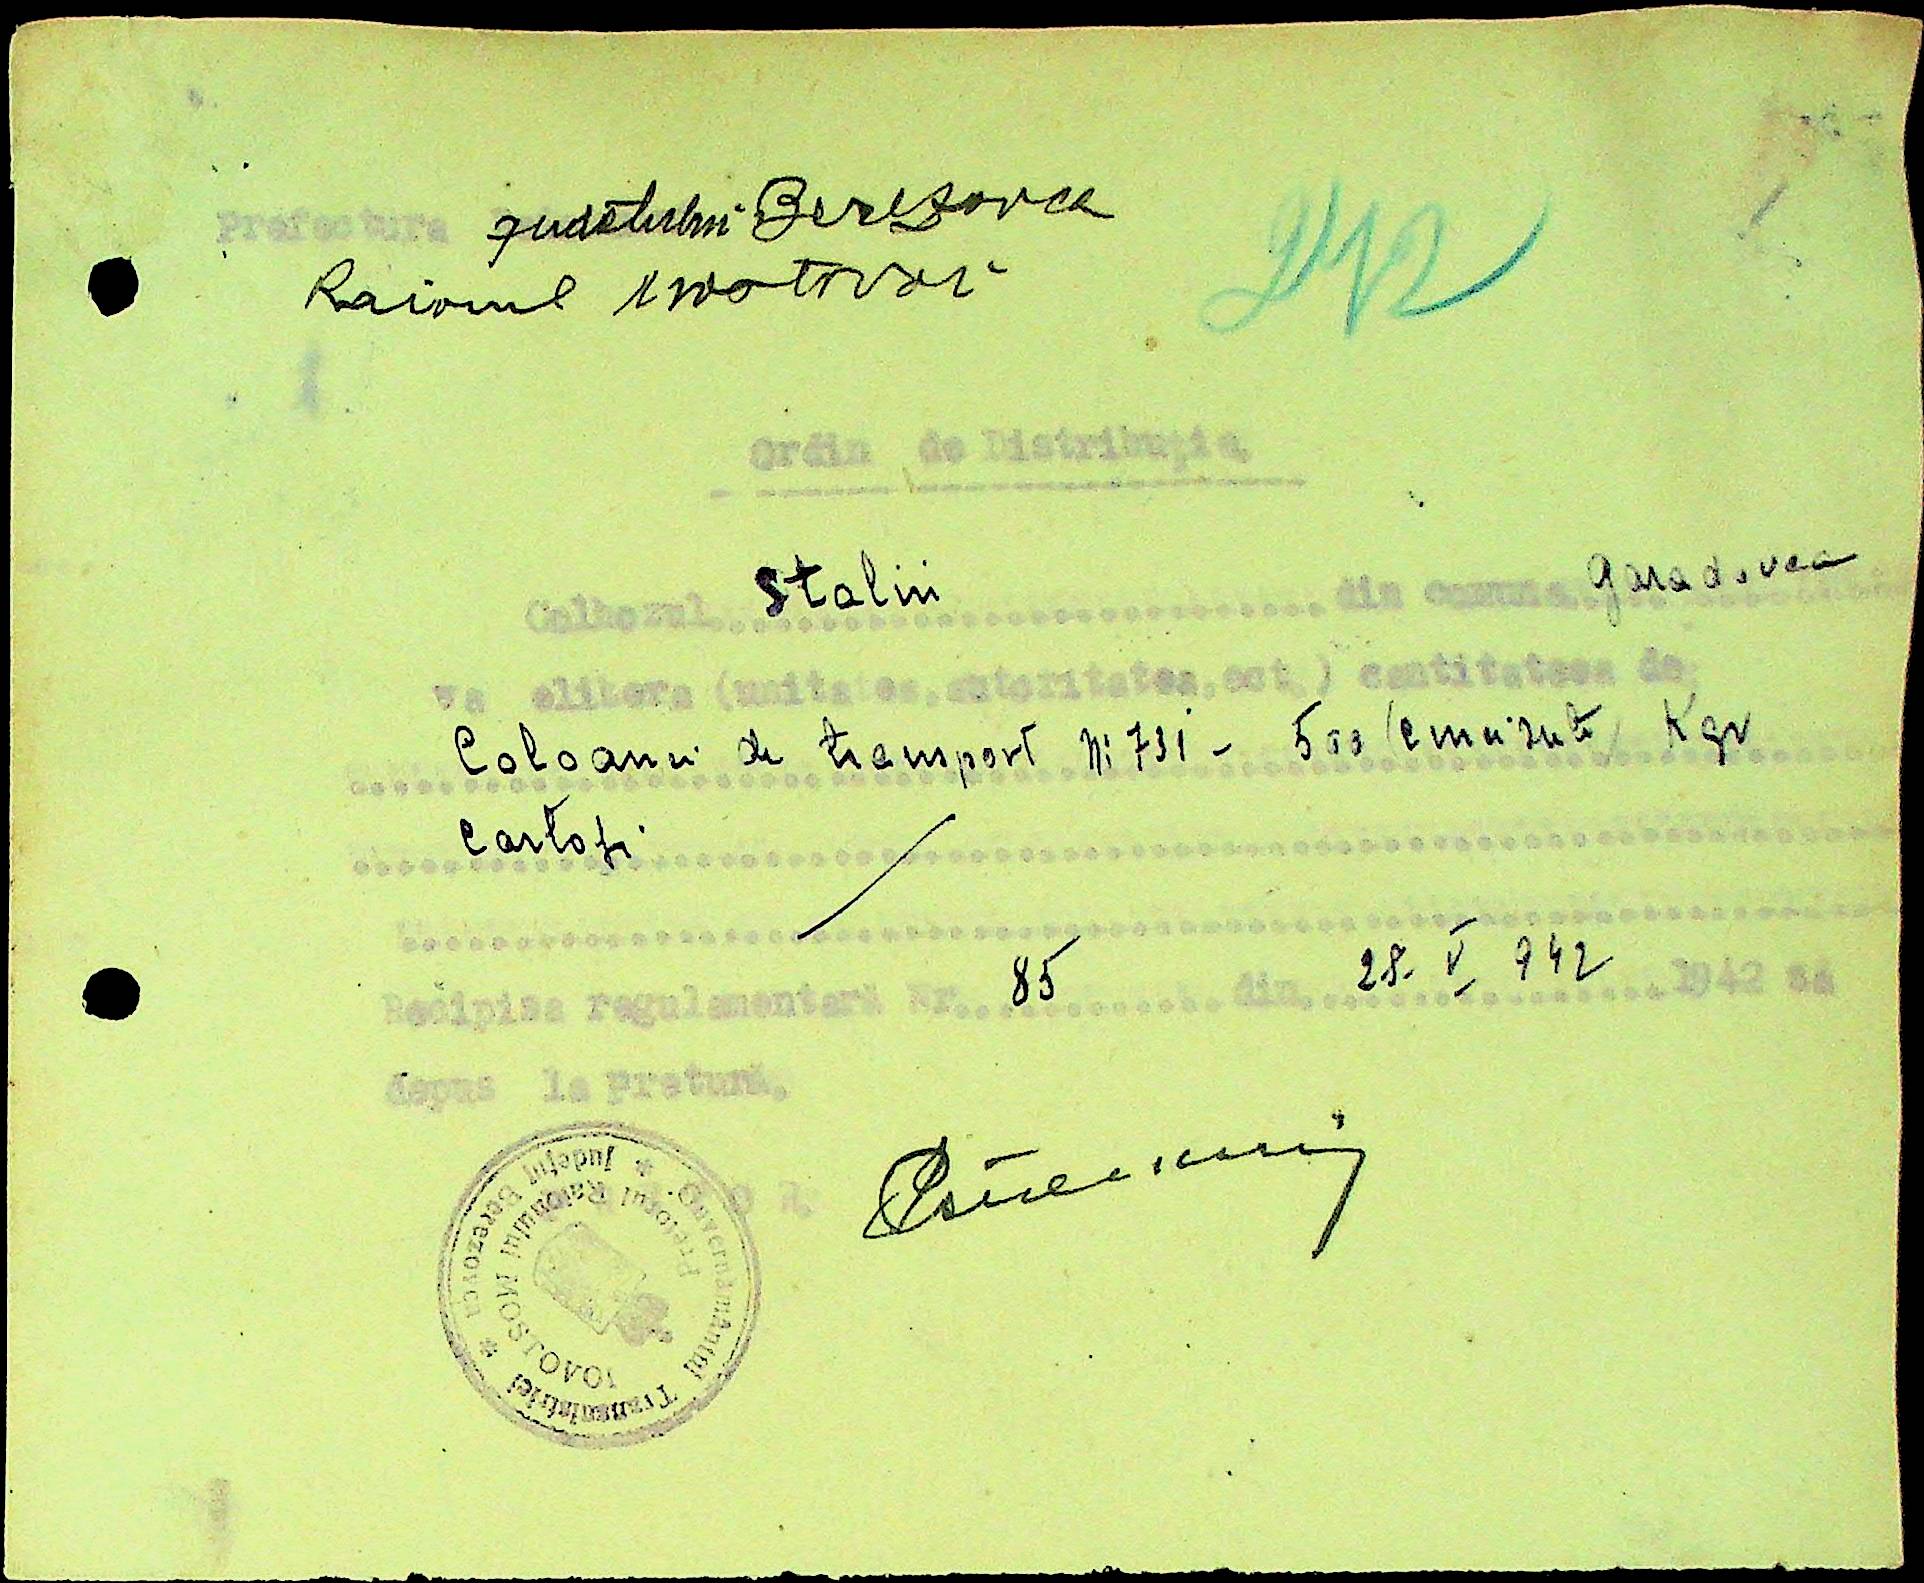 Prefectura judetului Berezovca
Raionul Mostovoi
242
Ordin de Distribuţie
Colhozul Stalin din comuna Garadovca
va elibera (unitatea, autoritatea, ect.) cantitatea de
Coloanei de transport Nr 731 - 500 (cinci sute) Kgr
Cartofi
Recipisa regulamentară Nr. 85 din 28. V 942 1942 sa
depus la pretură.
Guvernământul Transnistriei * Judeţul Berezovca *
Pretorul Raionului MOSTOVOI